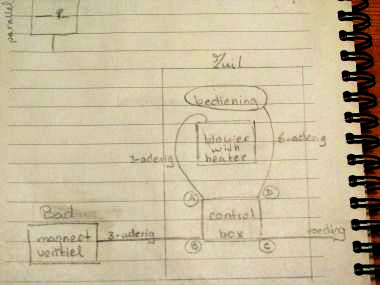 parallel
Zuil
bediening
blower
with
heater
3-aderig
6-aderig
A
D
Bad
magneet
ventiel
3-aderig
control
box
B
C
voeding